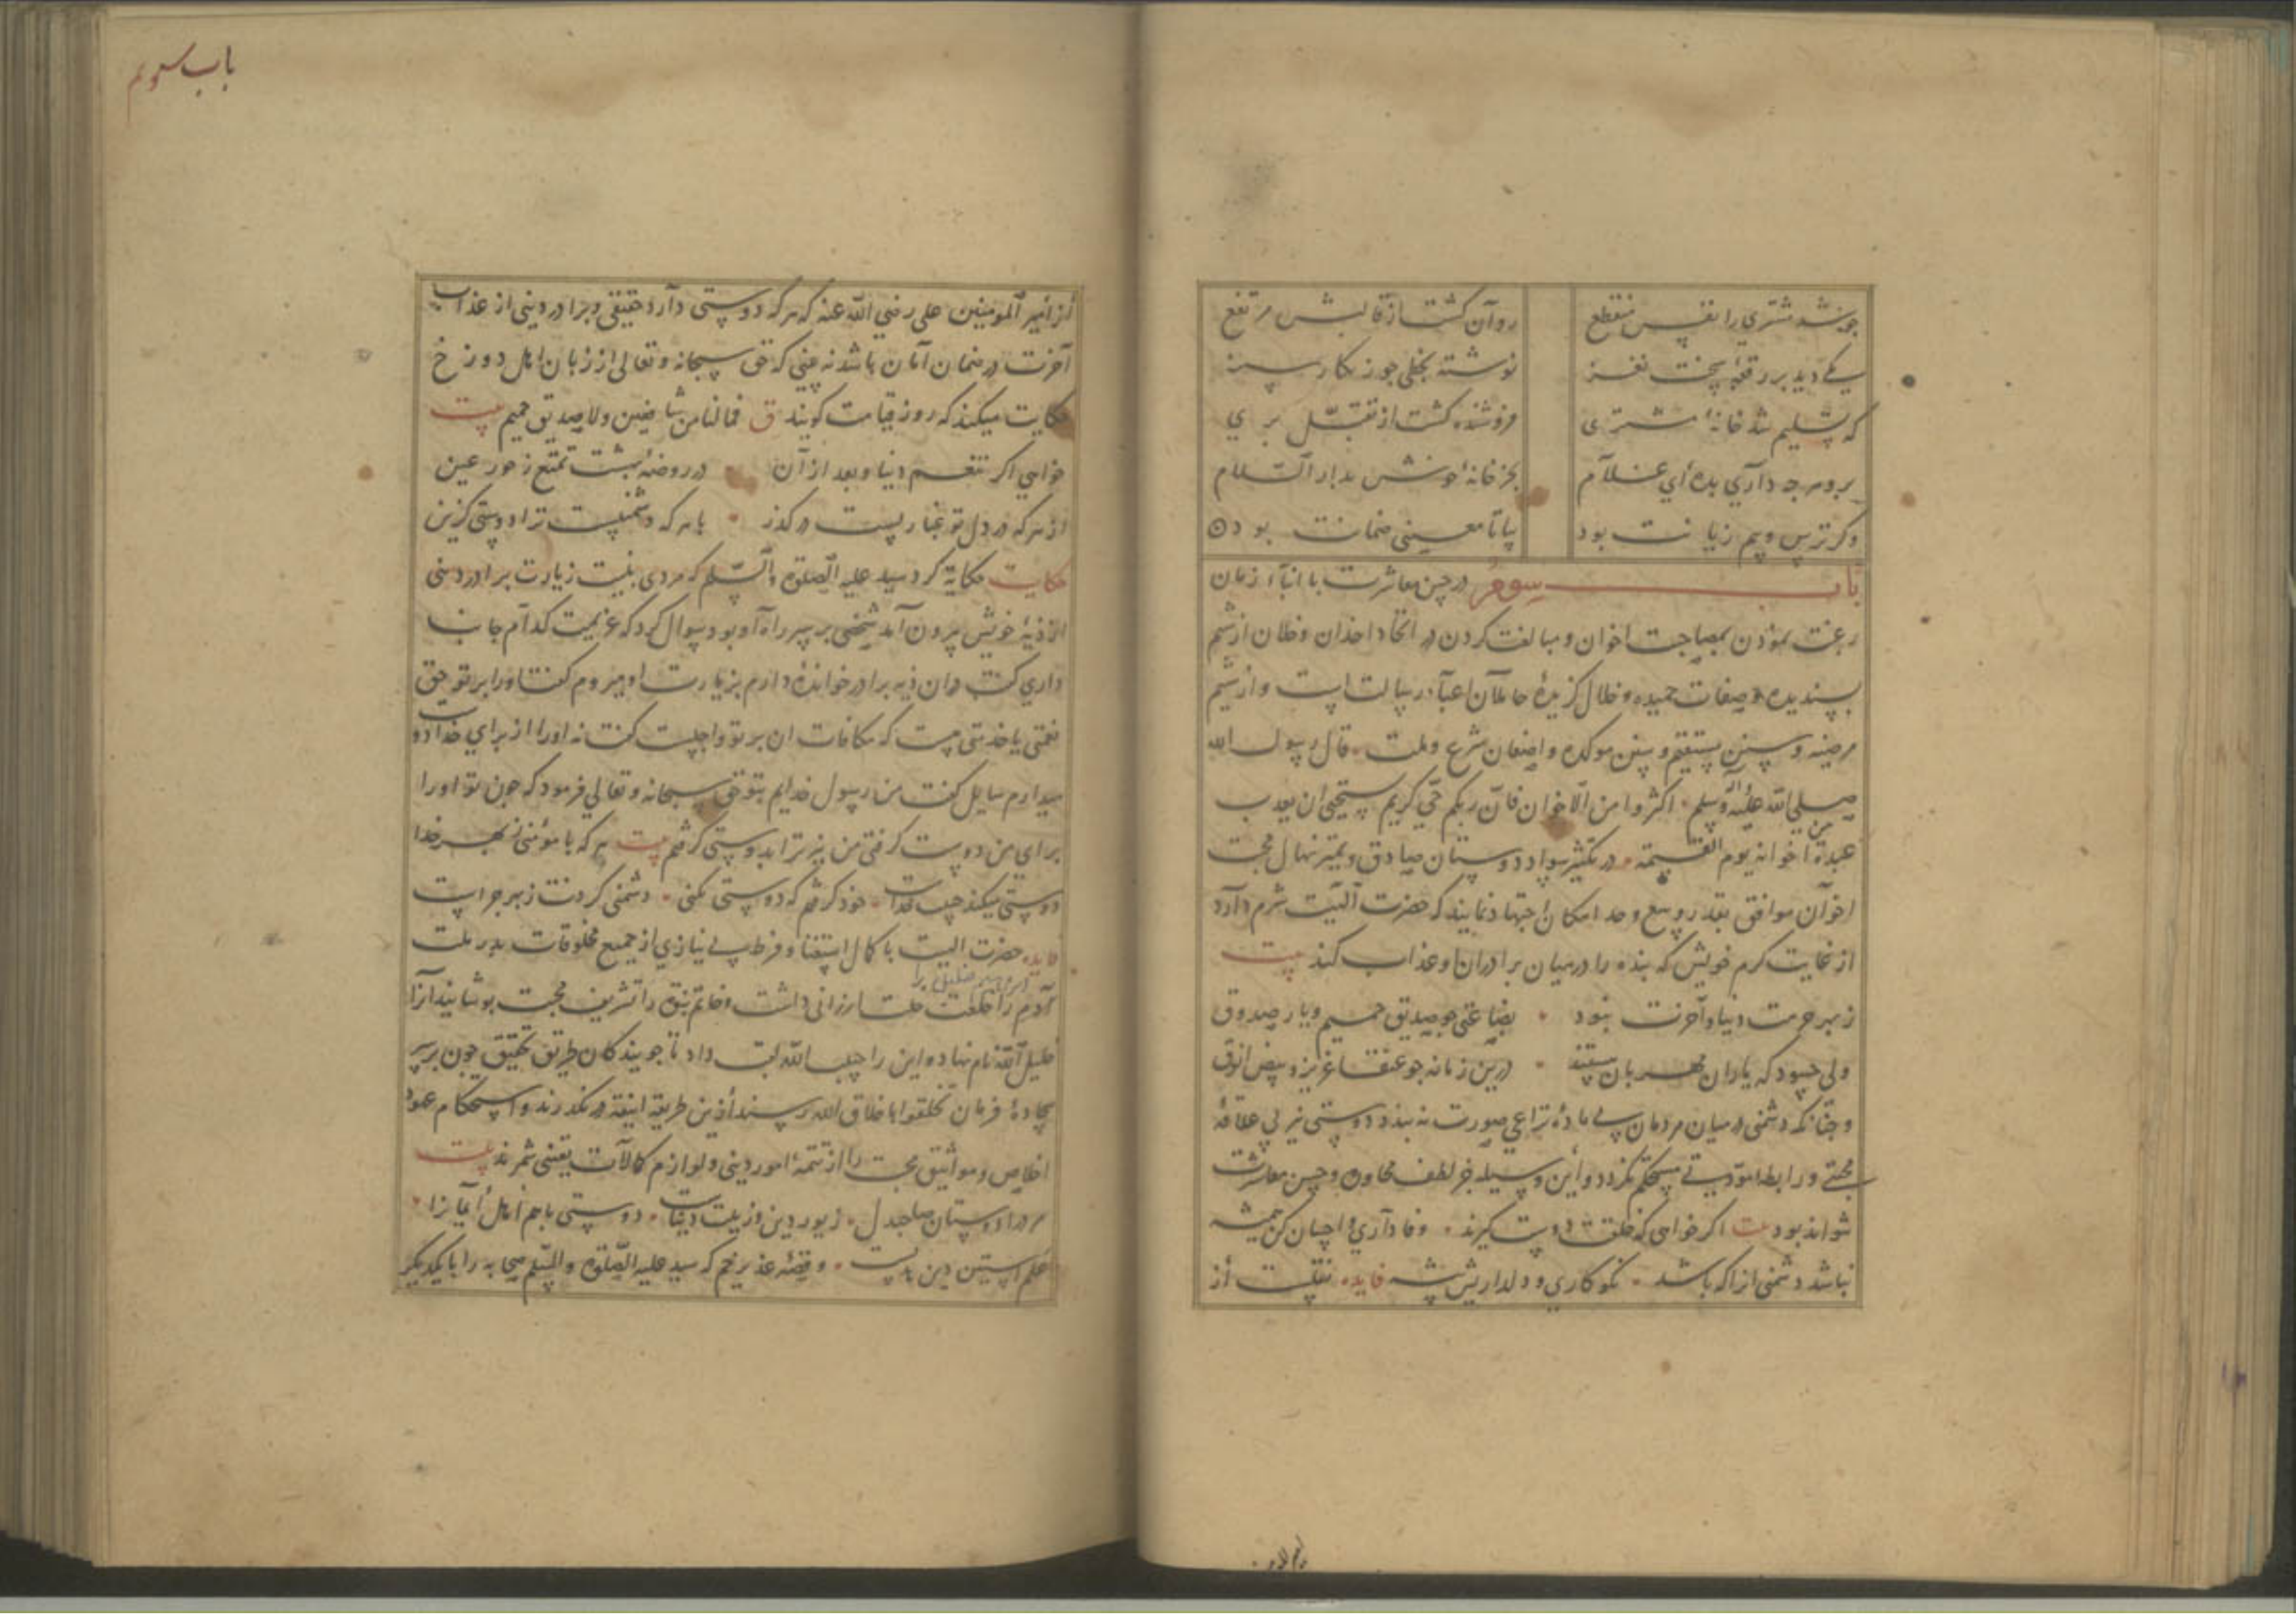 چو شد مشتری را نفس منقطع روان کشت از قالبش مرتفع
یکی دید بر رقعهٔ سخت نغز نوشته بخطی چو زنکار سبز
که تسلیم شد خانهٔ مشتری فروشنده کشت از تقبل بری
برو هرچه داری بده ای غلام بخر خانهٔ خوش بدار السلام
وکر ترس وبیم زیانت بود بیا تا معینی ضمانت بود
باب سوم در حسن معاشرت با ابنا زمان
رغبت نمودن بمصاحبت اخوان و مبالغت کردن در اتخاذ اخدان و خلان از شیم
پسندیده و صفات حمیده و خلال کزیدهٔ حاملان اعباء رسالت است و از شیم
مرضیه و سنن مستقیم و سنن موکده واضعان شرع و ملت قال رسول الله
صلی الله علیه واله وسلم اکثروا من الاخوان فان ربکم حی کریم یستحیی ان یعذب
عبده بین اخوانه یوم القیمة در تکثیر سواد دوستان صادق و نهال محبت
اخوان موافق بقدر وسع و حد امکان اجتهاد نمایند که حضرت الهیت شرم دارد
از غایت کرم خویش که بنده را در میان برادران او عذاب کند بیت
ز بهر حرمت دنیا و آخرت نبود بضاعتی چو صدیق حمیم و یار صدوق
ولی چسود که یاران مهربان هستند درین زمانه چو عنقا عزیز و بیض انوق
و چنانکه دشمنی در میان مردمان بی مادهٔ نزاعی صورت نه بندد دوستی نیز بی علاقهٔ
محبتی و رابطه مودتی مستحکم نکردد و این وسیله جز لطف محاورت و حسن معاشرت
نتواند بود بیت اکر خواهی که خلقت دوست کیرند وفاداری و احسان کن همیشه
نباشد دشمنی آنرا که باشد نکوکاری و دلداریش پیشه فایده نقلست از
باب سوم
از امیر المومنین علی رضی الله عنه که هر که دوستی دارد حقیقی و برادر دینی از عذاب
آخرت در ضمان امان باشد نه بینی که حق سبحانه و تعالی از زبان اهل دوزخ
حکایت میکند که روز قیامت کویند ق فمالنا من شافعین ولا صدیق حمیم بیت
خواهی اکر تنعم دنیا و بعد از آن در روضهٔ بهشت تمتع ز حور عین
از هر که در دل تو غباریست در کذر با هر که دشمنیست ترا دوستی کزین
حکایت حکایة کرد سید علیه الصلوة والسلم که مردی بنیت زیارت برادر دینی
از دیهٔ خویش بیرون آمد شخصی بر سر راه او بود سوال کرد که عزیمت کدام جانب
داری کفت در آن دیه برادر خواندهٔ دارم بزیارت او میروم کفت او را بر تو حق
نعمتی یا خدمتی هست که مکافات آن بر تو واجبست کفت نه او را از برای خدا دوست
میدارم سایل کفت من رسول خدایم بتو حق سبحانه و تعالی فرمود که چون تو او را
برای من دوست کرفتی من نیز ترا بدوستی کرفتم بیت هر که با مؤمنی ز بهر خدا
دوستی میکند حبیب خداست خود کرفتم که دوستی نکنی دشمنی کردنت ز بهر چراست
فایده حضرت الهیت با کمال استغنا و فرط بی نیازی از جمیع مخلوقات پدر ملت
ابراهیم خلیل را
آدم را خلعت خلت ارزانی داشت و خاتم نبوة را تشریف محبت پوشانید آنرا
خلیل الله نام نهاد و این را حبیب الله لقب داد تا جویندکان طریق تحقیق چون بر سر
جادهٔ فرمان تخلقوا باخلاق الله رسند ازین طریقه انیقه در نکذرند و استحکام عقود
اخلاص و مواثیق محبت را از تتمهٔ امور دینی و لوازم کمالات یقینی شمرند بیت
مرد را دوستان صاحبدل زیور دین و زینت دنیاست دوستی با هم اهل ایمان را
علم آستین دین باید و قصهٔ غدیر خم که سید علیه الصلوة والسلم صحابه را با یکدیکر